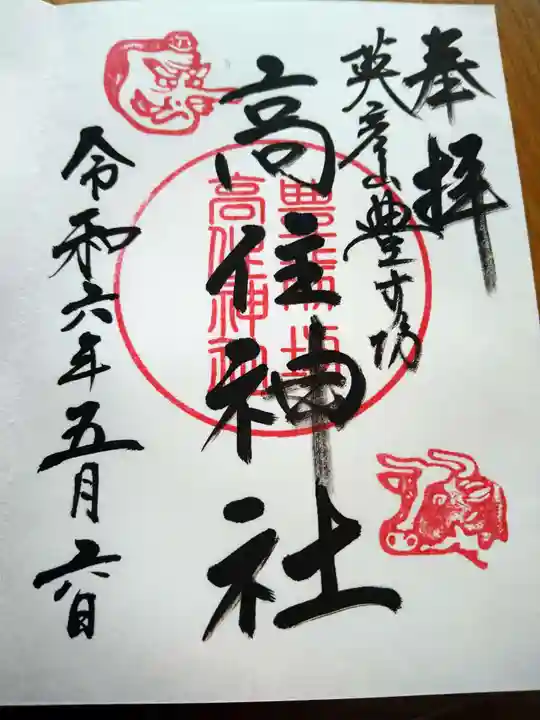 奉拝
英彦山豊前坊
高住神社
令和六年五月六日
高住神社